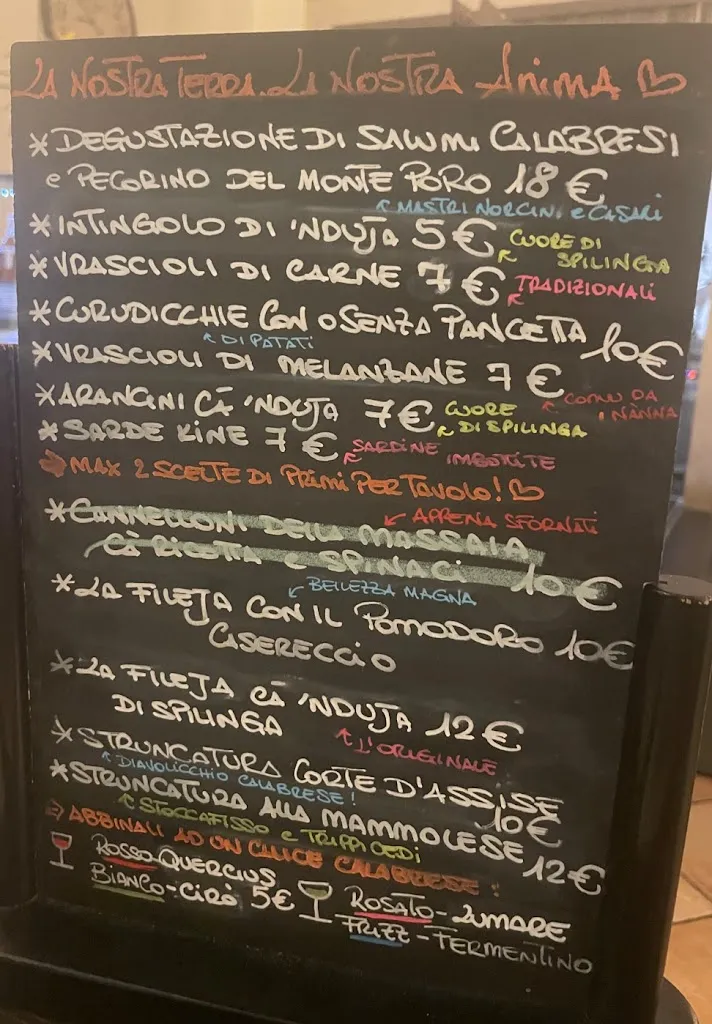 LA NOSTRA TERRA. LA NOSTRA ANIMA
* DEGUSTAZIONE DI SALUMI CALABRESI
e PECORINO DEL MONTE PORO 18 €
MASTRI NORCINI e CASARI
* INTINGOLO DI 'NDUJA 5 €
CUORE DI
SPILINGA
* VRASCIOLI DI CARNE 7 €
TRADIZIONALI
* CURUDICCHIE CON O SENZA PANCETTA 10 €
DI PATATI
* VRASCIOLI DI MELANZANE 7 €
COMU DA
NÀNNA
* ARANCINI CÀ 'NDUJA 7 €
CUORE
DI SPILINGA
* SARDE KINE 7 €
SARDINE IMBOTTITE
MAX 2 SCELTE DI PRIMI PER TAVOLO!
APPENA SFORNATI
* CANNELLONI DELLA MASSAIA
CÀ RICOTTA E SPINACI 10 €
BELLEZZA MAGNA
* LA FILEJA CON IL POMODORO 10 €
CASERECCIO
* LA FILEJA CÀ 'NDUJA 12 €
DI SPILINGA
L'ORIGINALE
* STRUNCATURA CORTE D'ASSISE
10 €
DIAVOLICCHIO CALABRESE!
* STRUNCATURA ALLA MAMMOLESE 12 €
STOCCAFISSO e TRIPPICEDI
ABBINALI AD UN CALICE CALABRESE:
ROSSO - QUERCIUS
BIANCO - CIRÒ 5 €
ROSATO - LUMARE
FRIZZ - FERMENTINO